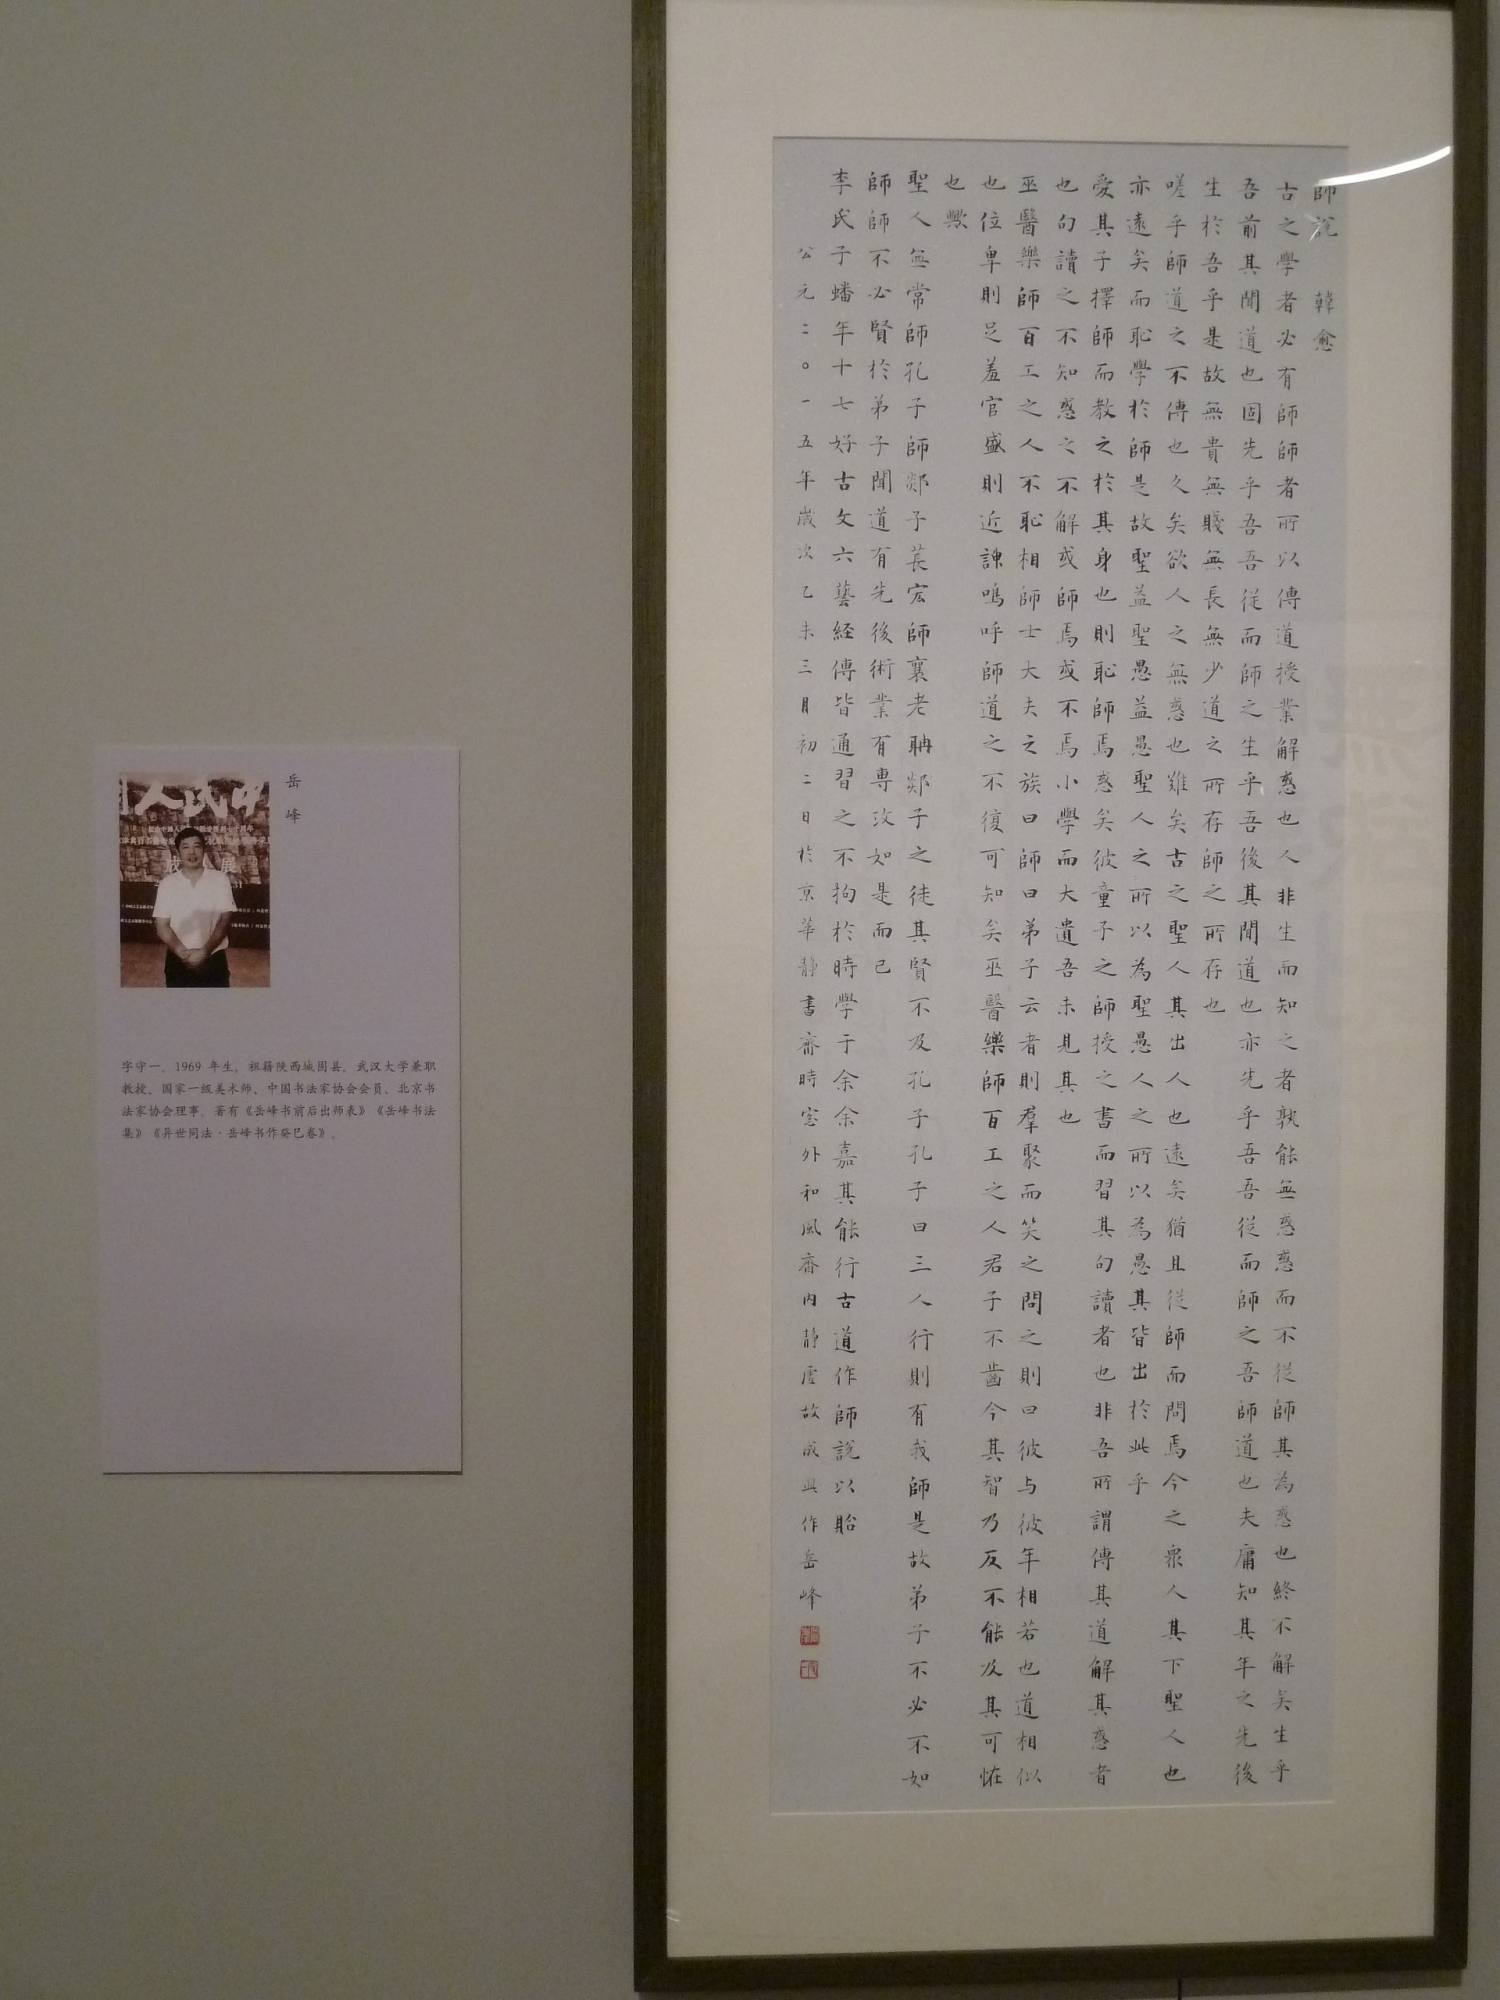 師說 韓愈
古之學者必有師師者所以傳道授業解惑也人非生而知之者孰能無惑惑而不從師其為惑也終不解矣生乎
吾前其聞道也固先乎吾吾從而師之生乎吾後其聞道也亦先乎吾吾從而師之吾師道也夫庸知其年之先後
生於吾乎是故無貴無賤無長無少道之所存師之所存也
嗟乎師道之不傳也久矣欲人之無惑也難矣古之聖人其出人也遠矣猶且從師而問焉今之眾人其下聖人也
亦遠矣而恥學於師是故聖益聖愚益愚聖人之所以為聖愚人之所以為愚其皆出於此乎
愛其子擇師而教之於其身也則恥師焉惑矣彼童子之師授之書而習其句讀者也非吾所謂傳其道解其惑者
也句讀之不知惑之不解或師焉或不焉小學而大遺吾未見其也
巫醫樂師百工之人不恥相師士大夫之族曰師曰弟子云者則羣聚而笑之問之則曰彼与彼年相若也道相似
也位卑則足羞官盛則近諛嗚呼師道之不復可知矣巫醫樂師百工之人君子不齒今其智乃反不能及其可怪
也歟
聖人無常師孔子師郯子萇宏師襄老聃郯子之徒其賢不及孔子孔子曰三人行則有我師是故弟子不必不如
師師不必賢於弟子聞道有先後術業有專攻如是而已
李氏子蟠年十七好古文六藝経傳皆通習之不拘於時學于余余嘉其能行古道作師說以貽
公元二〇一五年歲次乙未三月初二日於京華靜書齋時窗外和風齋内靜虛故成興作岳峰
岳峰
字守一，1969 年生，祖籍陕西城固县，武汉大学兼职
教授、国家一级美术师、中国书法家协会会员、北京书
法家协会理事，著有《岳峰书前后出师表》《岳峰书法
集》《异世同法·岳峰书作癸巳卷》。
人民中